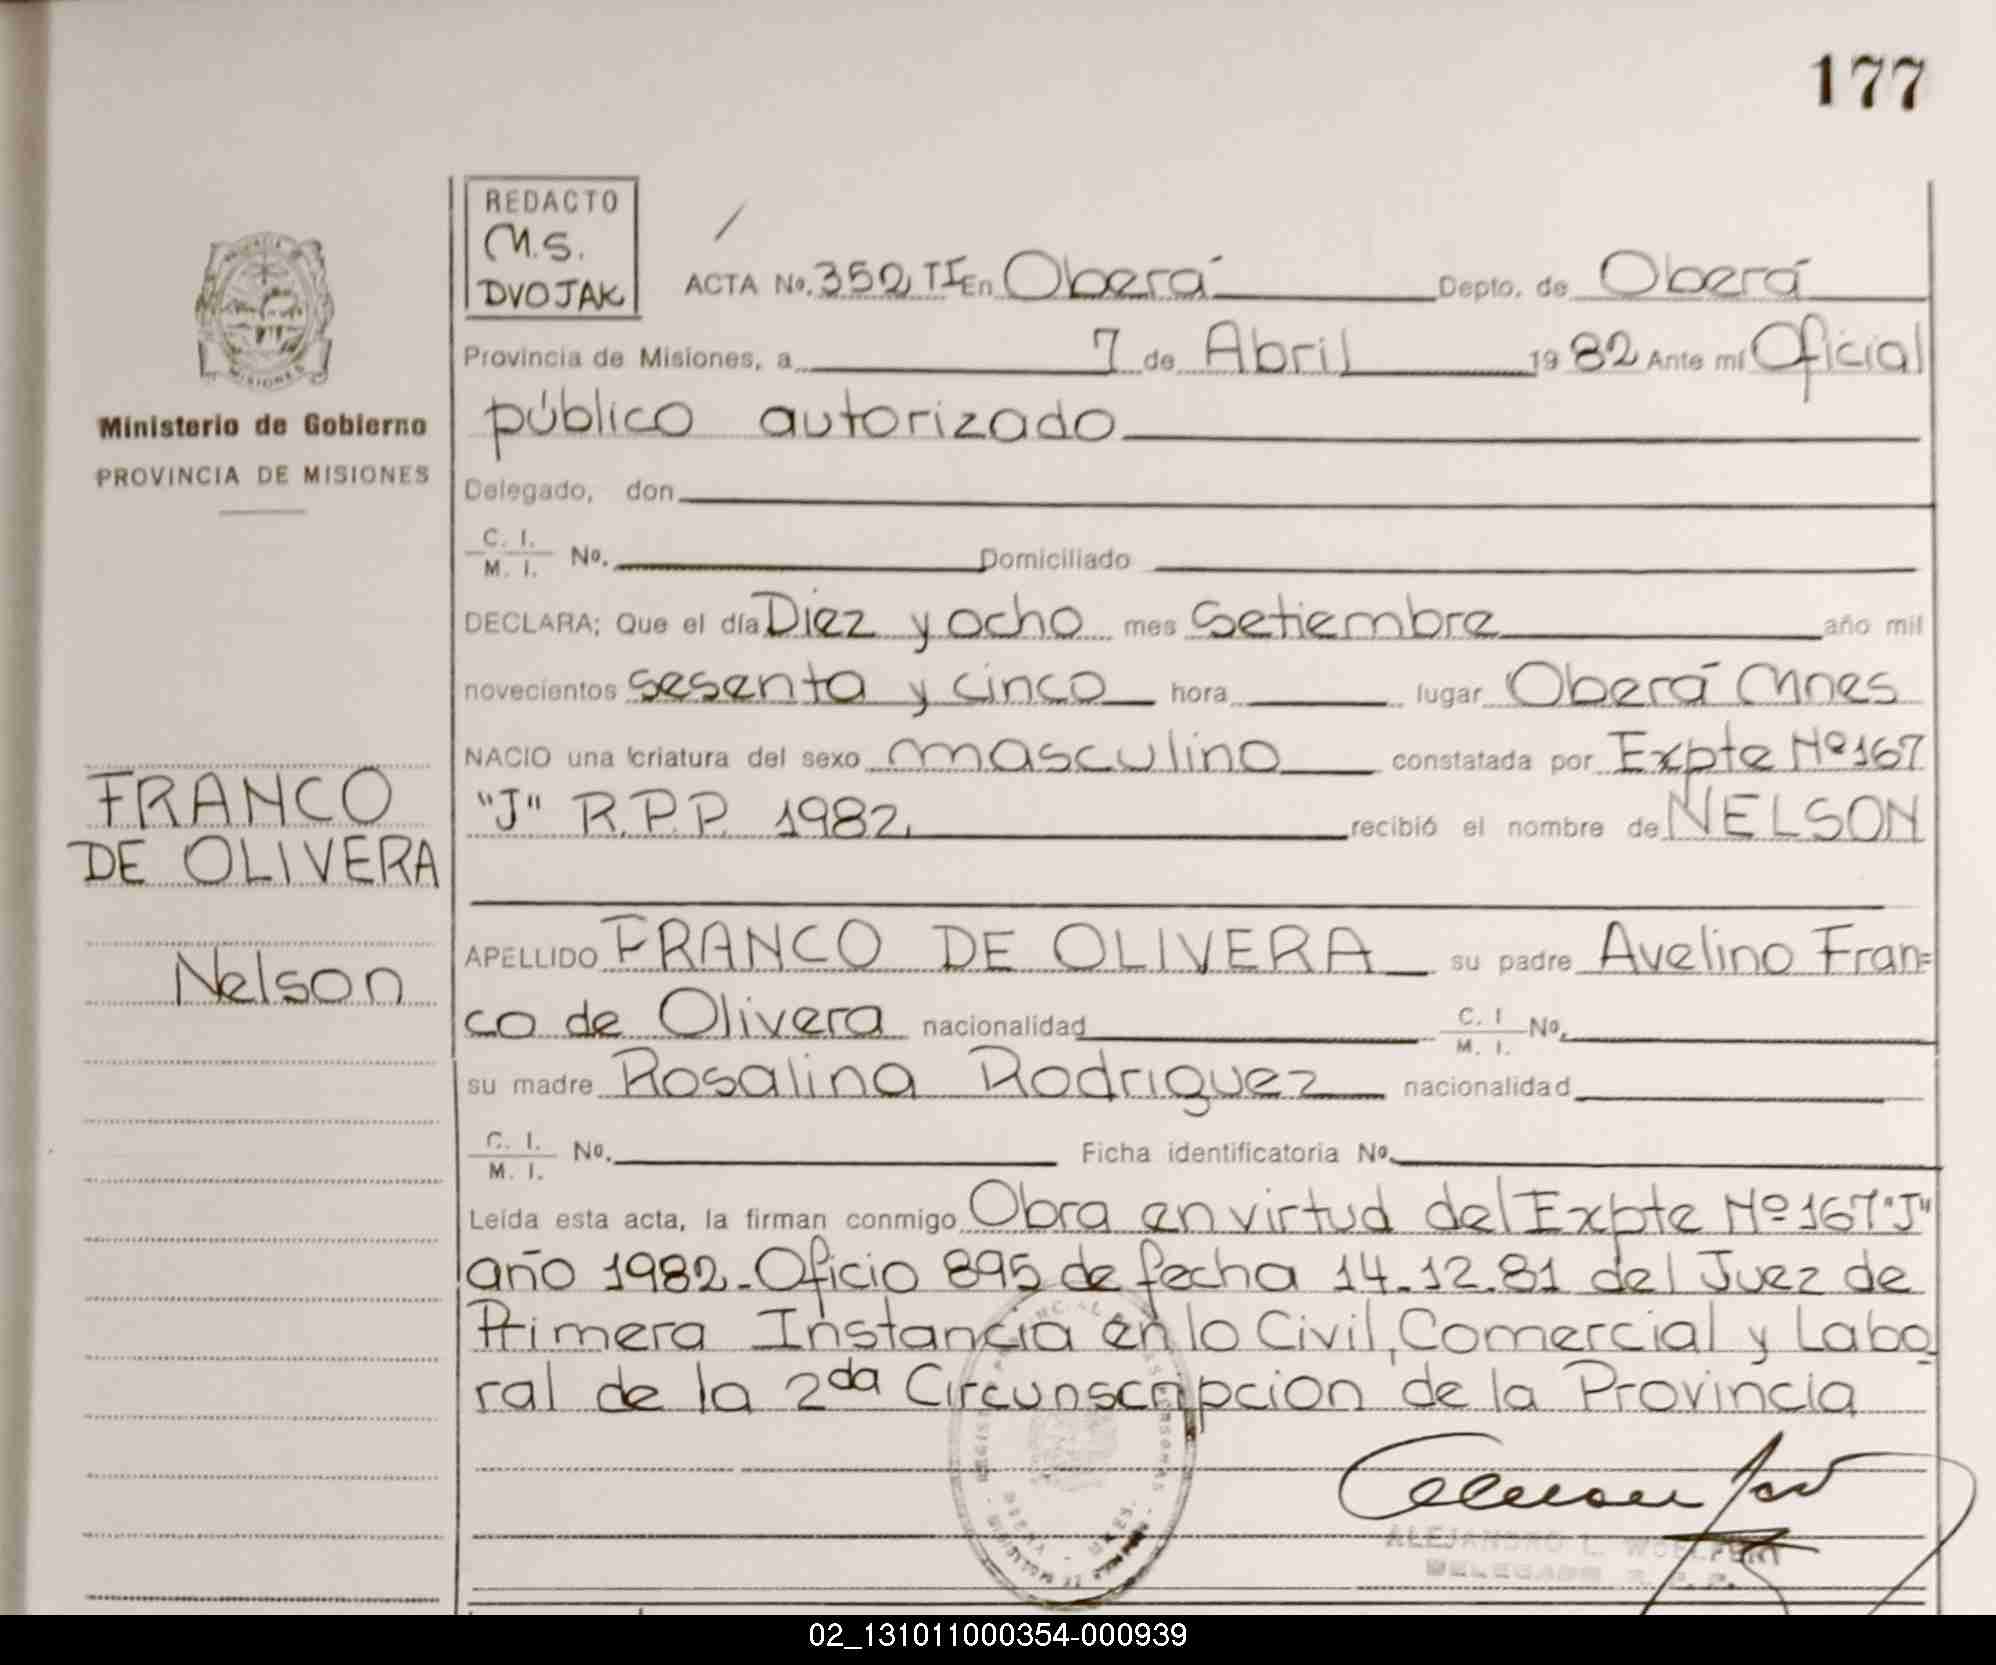 177
REDACTO
M.S.
DVOJAK
ACTA No. 352 TI En Oberá Depto. de Oberá
Provincia de Misiones, a 7 de Abril 1982 Ante mí Oficial
público autorizado
Delegado, don
C. I.
M. I. No. Domiciliado
DECLARA; Que el día Diez y ocho mes Setiembre año mil
novecientos sesenta y cinco hora lugar Oberá Mnes
NACIO una criatura del sexo masculino constatada por Expte Nº 167
"J" R.P.P. 1982. recibió el nombre de NELSON
APELLIDO FRANCO DE OLIVERA su padre Avelino Fran=
co de Olivera nacionalidad C. I
M. I. No.
su madre Rosalina Rodriguez nacionalidad
C. I.
M. I. No. Ficha identificatoria No.
Leída esta acta, la firman conmigo Obra en virtud del Expte Nº 167 "J"
año 1982 - Oficio 895 de fecha 14.12.81 del Juez de
Primera Instancia en lo Civil, Comercial y Labo
ral de la 2da Circunscripcion de la Provincia
ALEJANDRO L.
DELEGADO R. P. P.
MISIONES
Ministerio de Gobierno
PROVINCIA DE MISIONES
FRANCO
DE OLIVERA
Nelson
02_131011000354-000939